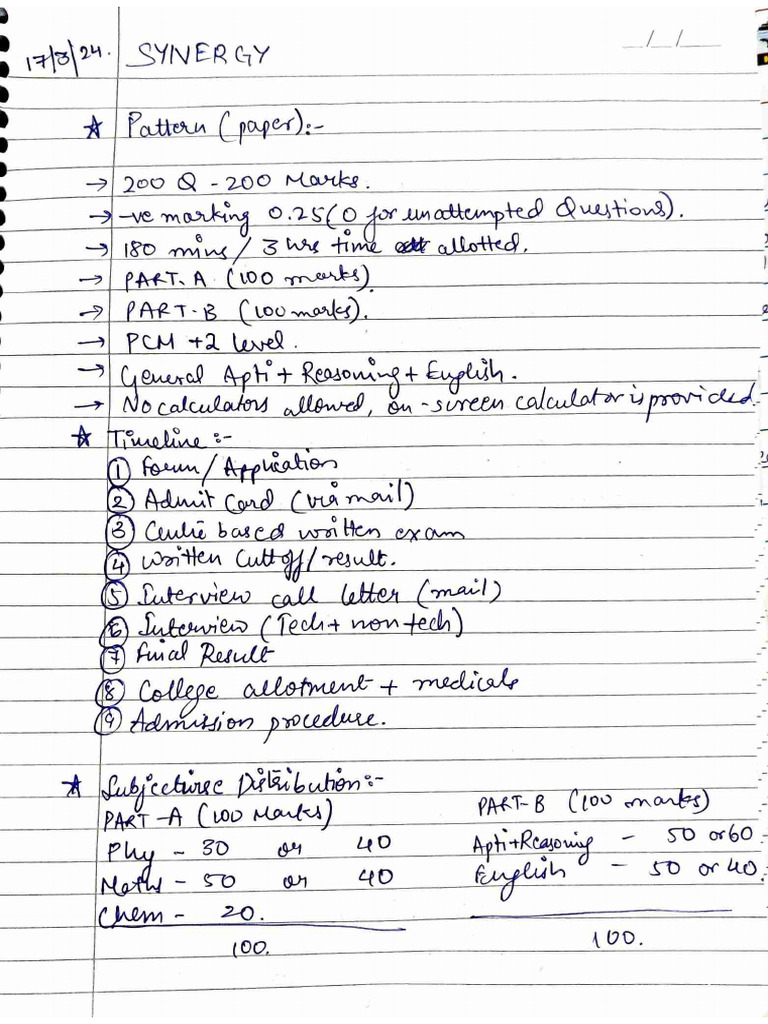 17/3/24. SYNERGY
☆ Pattern (paper):-
→ 200 Q - 200 Marks.
→ -ve marking 0.25 (0 for unattempted Questions).
→ 180 mins / 3 hrs time allotted.
→ PART-A (100 marks)
→ PART-B (100 marks).
→ PCM +2 level.
→ General Apti + Reasoning + English.
→ No calculators allowed, on-screen calculator is provided.
☆ Timeline :-
① Form / Application
② Admit Card (via mail)
③ Centre based written exam
④ Written Cuttoff / result.
⑤ Interview call letter (mail)
⑥ Interview (Tech + non tech)
⑦ Final Result
⑧ College allotment + medicals
⑨ Admission procedure.
☆ Subjectwise Distribution:-
PART-A (100 Marks) PART-B (100 marks)
Phy - 30 or 40 Apti+Reasoning - 50 or 60
Maths - 50 or 40 English - 50 or 40.
Chem - 20.
100. 100.